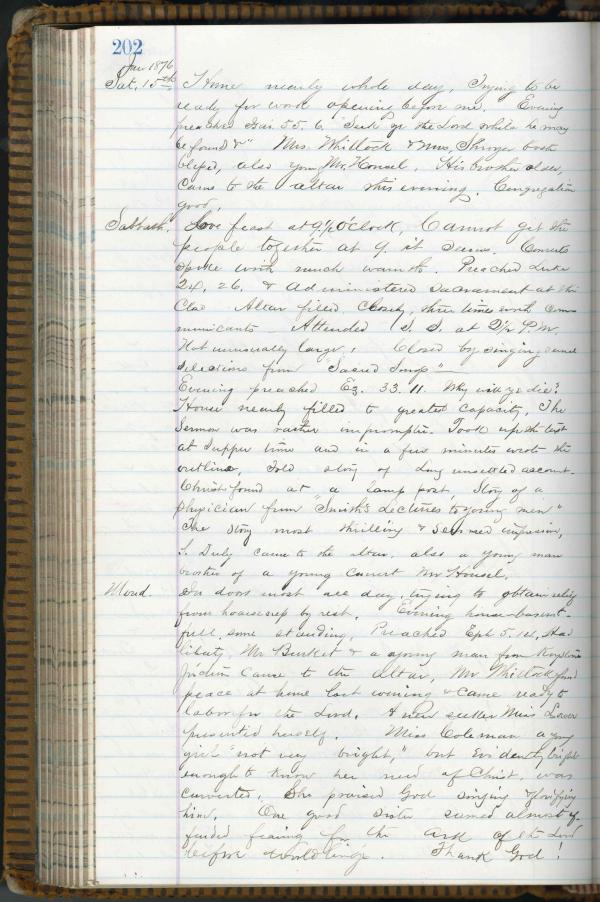 202
Jan 1876
Sat. 15th Home nearly whole day, Trying to be
ready for work opening before me. Evening
preached Isai. 55. 6. "Seek ye the Lord while he may
be found &" Mrs. Whitlock & Mrs. both
blessed, also young Mr. Housel. His brother older,
came to the altar this evening. Congregation
good.
Sabbath. Love feast at 9½ o'clock, Cannot get the
people together at 9. it seems. Converts
spoke with much warmth. Preached Luke
24, 26. & administered sacrament at the
Altar filled closely, three times with com
municants - Attended S. S. at 2½ P.M.
Not unusually large. Closed by singing some
selections from "Sacred Songs" -
Evening preached Ez. 33. 11. Why will ye die?
House nearly filled to greatest capacity, The
sermon was rather impromptu. Took up the text
at supper time and in a few minutes wrote the
outline, Told story of Long unsettled account.
Christ found at a lamp post, Story of a
physician from "Smith's Lectures to young men"
The story most thrilling & seemed
S. Duly came to the altar. also a young man
brother of a young convert Mr Housel.
Mond. In doors most all day, trying to obtain relief
from by rest. Evening house
full, some standing, Preached Eph. 5. 14, Had
liberty, Mr Burket & a young man from
came to the altar, Mr Whitlock found
peace at home last evening & came ready to
labor for the Lord. A new seeker Miss
presented herself. Miss Coleman a young
girl "not very bright," but evidently bright
enough to know her need of Christ, was
converted. She praised God singing & glorifying
him. One good sister seemed almost of-
fended fearing for the ark of the Lord
before worldlings. Thank God!